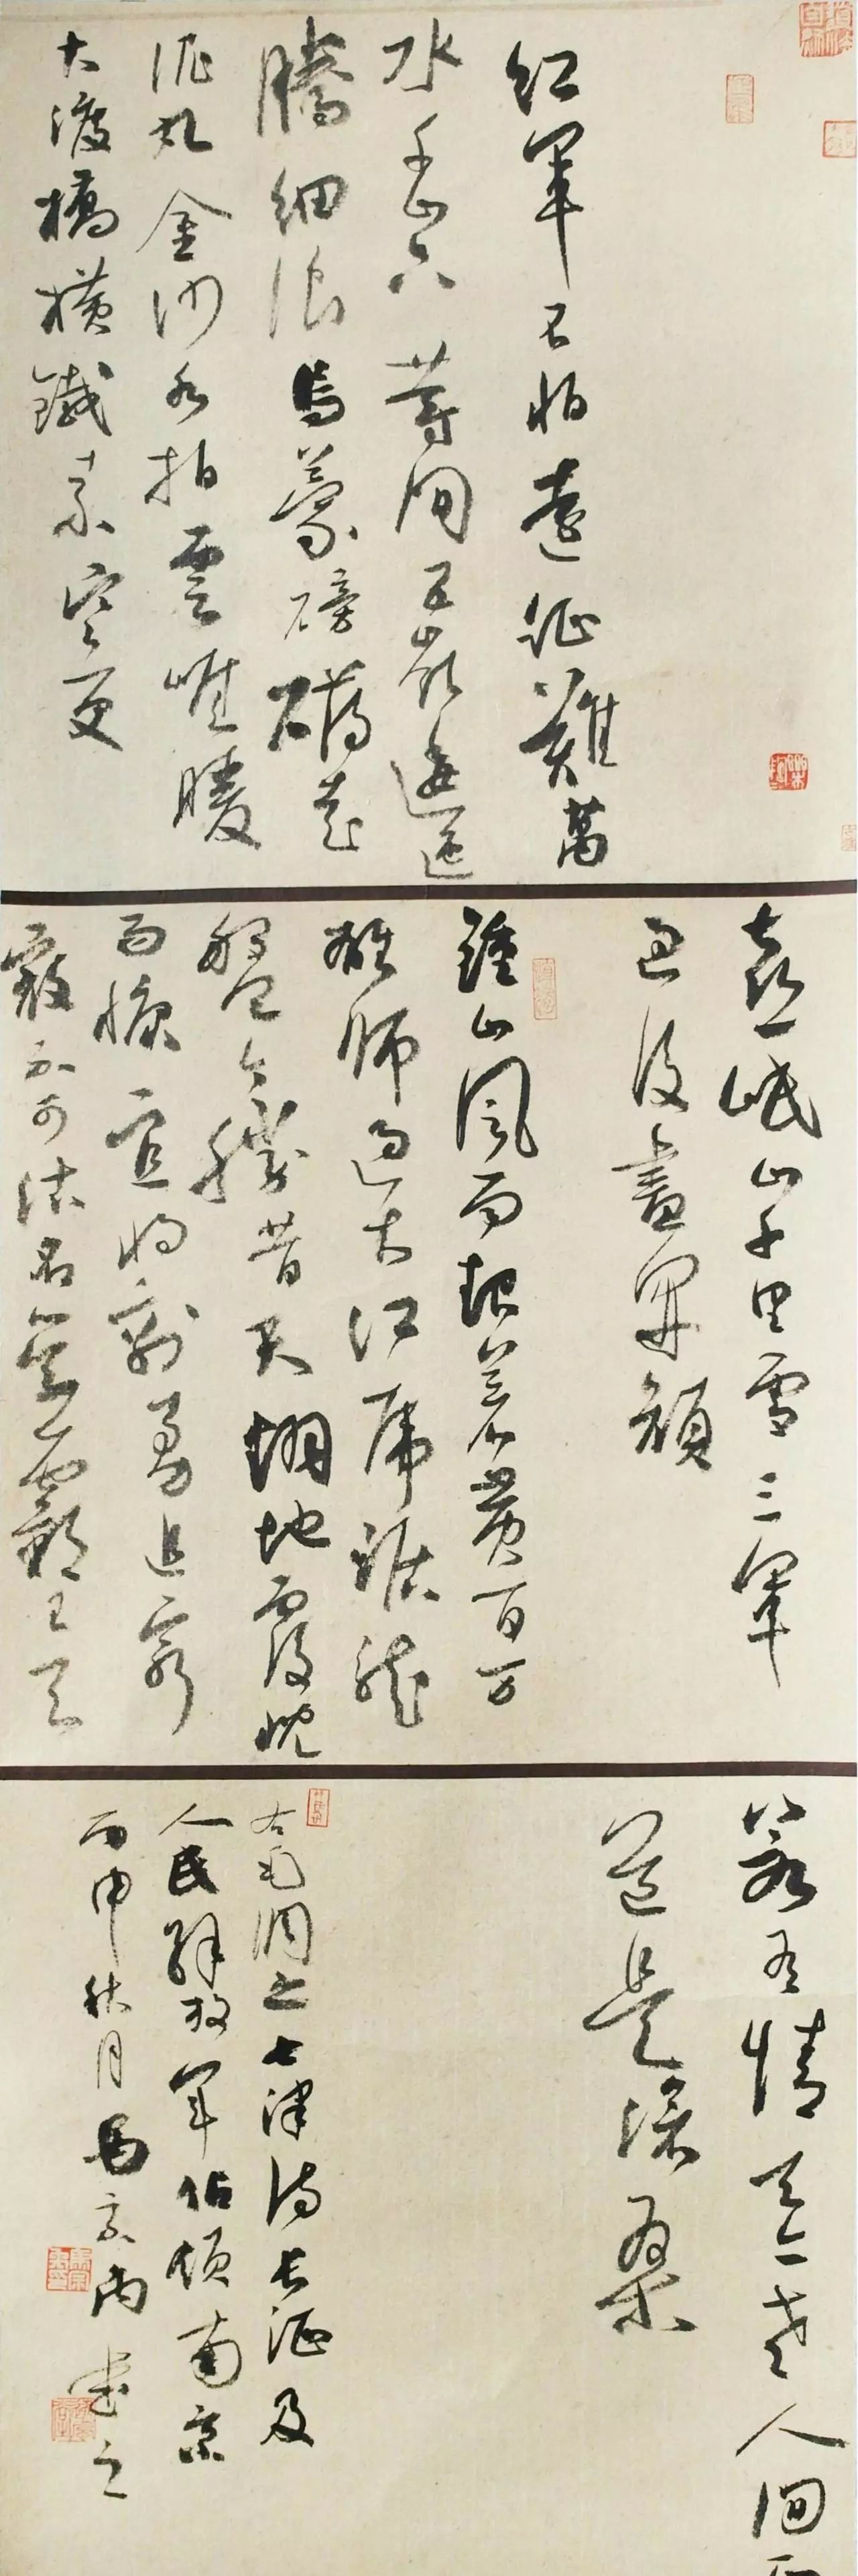 红军不怕远征难萬
水千山只等闲五岭逶迤
腾细浪乌蒙磅礴走
泥丸金沙水拍雲崖暖
大渡橋横鐵索寒更
喜岷山千里雪三军
过后盡开颜
鍾山风雨起苍黄百万
雄师过大江虎踞龙
盘今勝昔天翻地覆慨
而慷宜将剩勇追穷
寇不可沽名学霸王天
若有情天亦老人间正
道是滄桑
右毛润之七律诗长征及
人民解放军佔领南京
丙申秋月马
书之